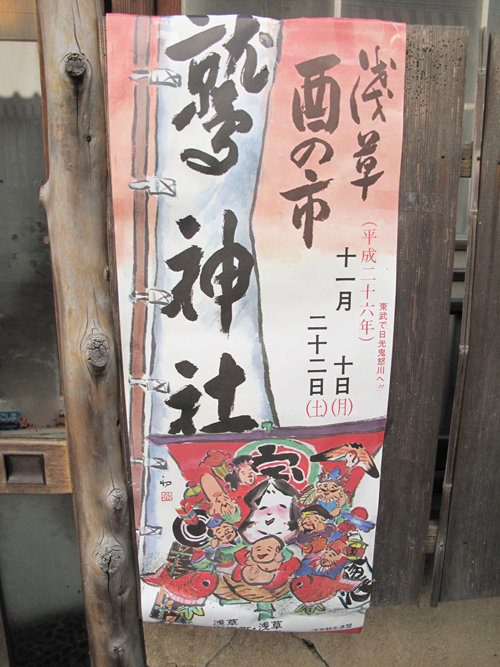 浅草
酉の市
鷲神社
(平成二十六年)
十一月
十日(月)
二十二日(土)
東武で日光鬼怒川へ!!
宝
浅草
浅草